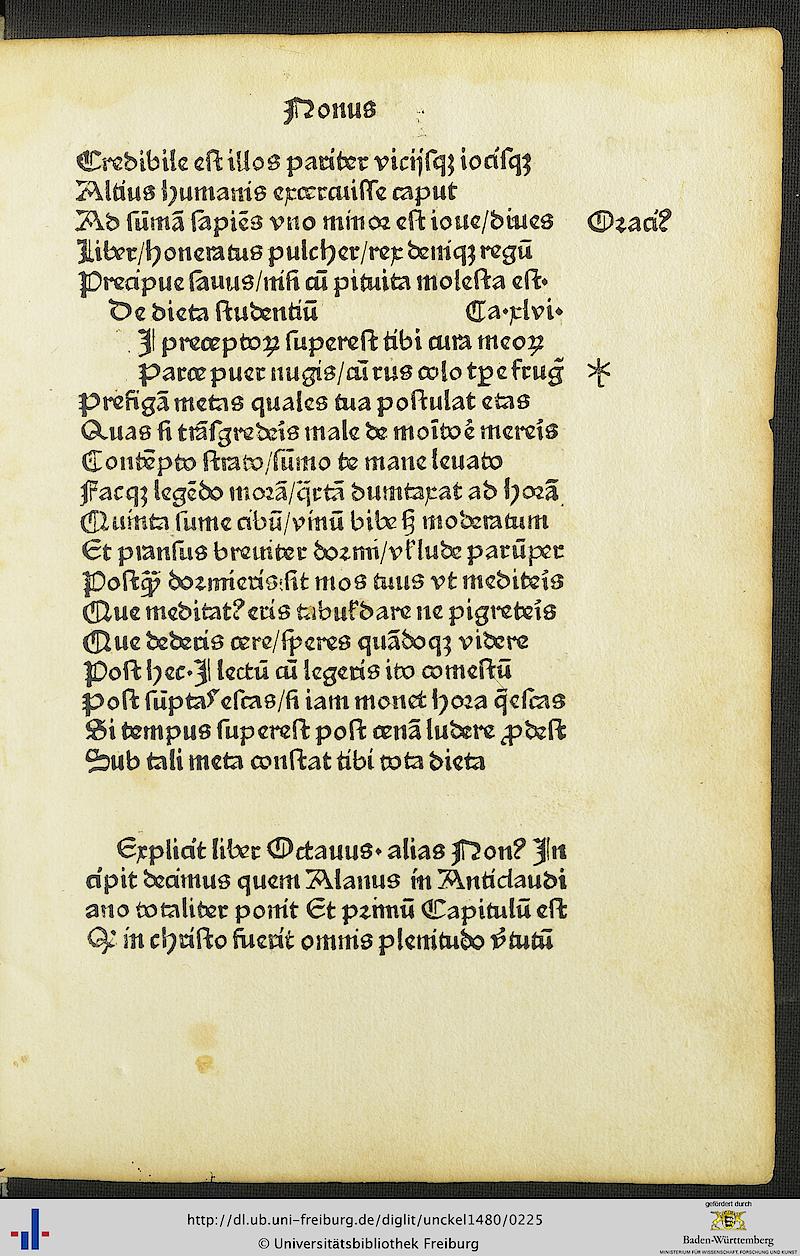 Nonus
Credibile est illos pariter vicijsqꝫ iocisqꝫ
Altius humanis excercuisse caput
Ad sūmā sapiēs vno minor est ioue/diues Oraciꝰ
Liber/honeratus pulcher/rex deniqꝫ regū
Precipue sanus/nisi cū pituita molesta est·
De dieta studentiū Ca·xlvi·
I preceptoꝝ superest tibi cura meoꝝ
Parce puer nugis/cū rus colo tꝑe frug̃ *
Prefigā metas quales tua postulat etas
Quas si trāsgrederis male de moītoē mereris
Contēpto strato/sūmo te mane leuato
Facqꝫ legēdo morā/q̄rtā dumtaxat ad horā
Quinta sume cibū/vinū bibe sꝫ moderatum
Et pransus breuiter dormi/vꝉ lude parūper
Postꝙ̄ dormieris sit mos tuus vt mediteris
Que meditatꝰ eris tabuꝉ dare ne pigreteris
Que dederis cere/speres quādoqꝫ videre
Post hec·I lectū cū legeris ito comestū
Post sūptas escas/si iam monet hora q̄escas
Si tempus superest post cenā ludere ꝓdest
Sub tali meta constat tibi tota dieta
Explicit liber Octauus· alias Nonꝰ In
cipit decimus quem Alanus in Anticlaudi
ano totaliter ponit Et primū Capitulū est
Ꝙ in christo fuerit omnis plenitudo v̓tutū
http://dl.ub.uni-freiburg.de/diglit/unckel1480/0225
© Universitätsbibliothek Freiburg
gefördert durch
Baden-Württemberg
MINISTERIUM FÜR WISSENSCHAFT, FORSCHUNG UND KUNST